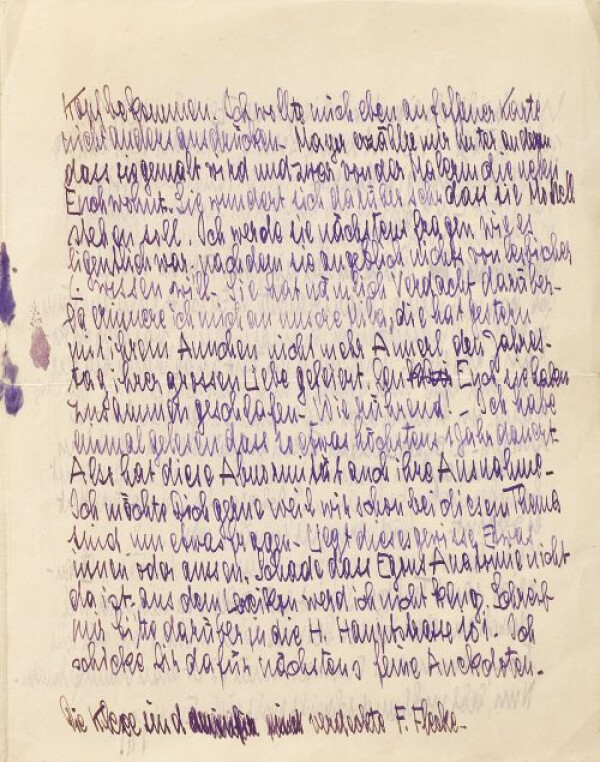 Kopf bekommen. Ich wollte mich eben auf offener Karte
nicht anders ausdrücken. Mayer erzählte mir unter anderem
dass sie gemalt wird und zwar von der Malerin die neben
Euch wohnt. Sie wundert sich darüber sehr dass sie Modell
stehen soll. Ich werde sie nächstens fragen wie es
eigentlich war. nachdem sie angeblich nichts von
wissen will. Sie hat nämlich Verdacht darüber-
Da erinnere ich mich an unsere die hat gestern
mit ihrem Annchen nicht mehr Annerl den Jahres-
tag ihrer grossen Liebe gefeiert. Bei Euch sie haben
zusammen geschlafen. Wie rührend! - Ich habe
einmal gelesen dass so etwas höchstens 1 Jahr dauert
Also hat diese Abnormität auch ihre Ausnahme-
Ich möchte Dich gerne weil wir schon bei diesem Thema
sind um etwas fragen. Liegt dieses gewisse Etwas
innen oder aussen. Schade dass Egons Anatomie nicht
da ist. aus dem Lexikon werd ich nicht klug. Schreib
mir bitte darüber in die H. Hauptstrasse 101. Ich
schicke Dir dafür nächstens feine Anekdoten.
Die Kleckse sind verdeckte F. Flecke-